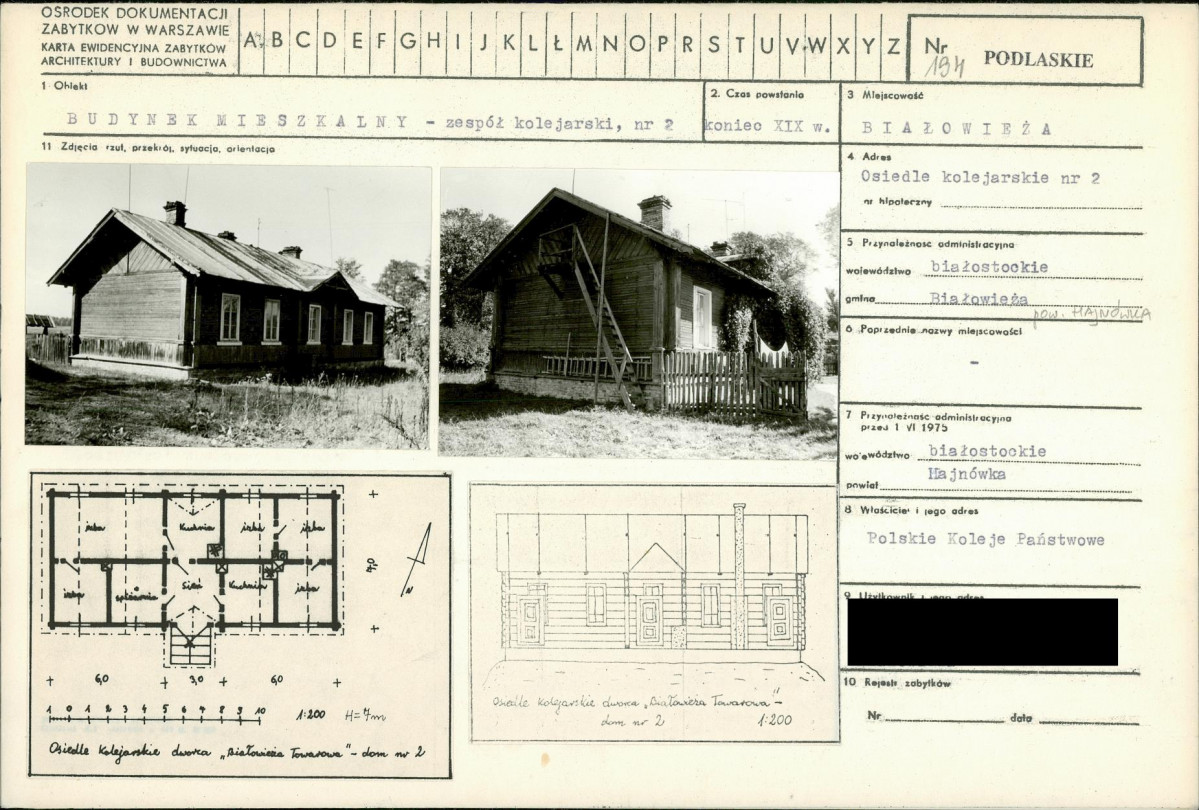 OSRODEK DOKUMENTACJI
ZABYTKOW W WARSZAWIE
KARTA EWIDENCYJNA ZABYTKÓW
ARCHITEKTURY I BUDOWNICTWA
A B C D E F G H I J K L Ł M N O P R S T U V W X Y Z
Nr
194
PODLASKIE
1 Obiekt
BUDYNEK MIESZKALNY - zespół kolejarski, nr 2
2. Czas powstania
koniec XIX w.
3 Miejscowość
BIAŁOWIEŻA
11 Zdjęcia rzut, przekrój, sytuacja, orientacja
4 Adres
Osiedle kolejarskie nr 2
nr hipoteczny
5 Przynależność administracyjna
województwo białostockie
gmina Białowieża
pow. HAJNÓWKA
6 Poprzednie nazwy miejscowości
-
7 Przynależność administracyjna
przed 1 VI 1975
województwo białostockie
powiat Hajnówka
8 Właściciel i jego adres
Polskie Koleje Państwowe
9 Użytkownik i jego adres
10 Rejestr zabytków
Nr data
izba Kuchnia izba izba
izba spiżarnia Sień Kuchnia izba
7,0
N
6,0 3,0 6,0
1 0 1 2 3 4 5 6 7 8 9 10 1:200 H=7m
Osiedle Kolejarskie dworca „Białowieża Towarowa" - dom nr 2
Osiedle Kolejarskie dworca „Białowieża Towarowa" -
dom nr 2 1:200